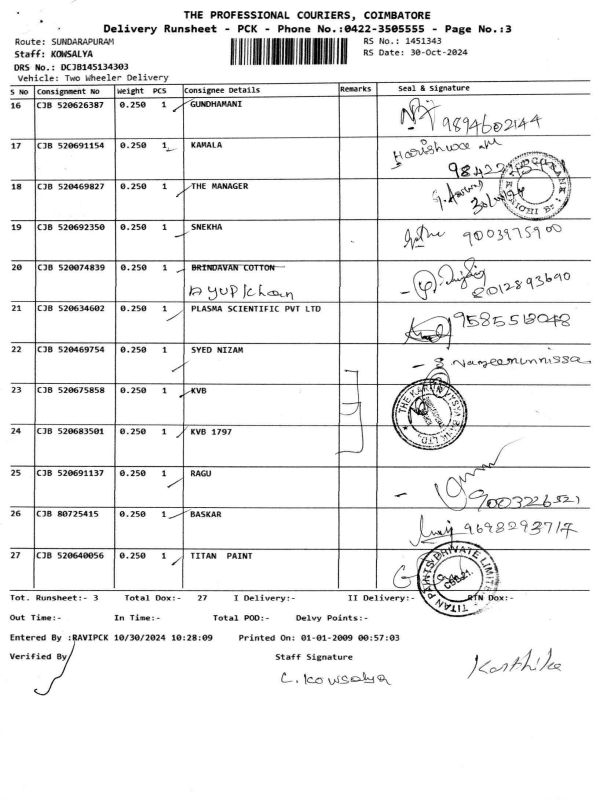 THE PROFESSIONAL COURIERS, COIMBATORE
Delivery Runsheet - PCK - Phone No.:0422-3505555 - Page No.:3
Route: SUNDARAPURAM RS No.: 1451343
Staff: KOWSALYA RS Date: 30-Oct-2024
DRS No.: DCJB145134303
Vehicle: Two Wheeler Delivery
S No Consignment No Weight PCS Consignee Details Remarks Seal & Signature
16 CJB 520626387 0.250 1 GUNDHAMANI
9894602144
17 CJB 520691154 0.250 1 KAMALA
18 CJB 520469827 0.250 1 THE MANAGER
19 CJB 520692350 0.250 1 SNEKHA
9003975900
20 CJB 520074839 0.250 1 BRINDAVAN COTTON
AYUP Khan 8012893690
21 CJB 520634602 0.250 1 PLASMA SCIENTIFIC PVT LTD
9585513048
22 CJB 520469754 0.250 1 SYED NIZAM
23 CJB 520675858 0.250 1 KVB
24 CJB 520683501 0.250 1 KVB 1797
25 CJB 520691137 0.250 1 RAGU
9003226521
26 CJB 80725415 0.250 1 BASKAR
9698293717
27 CJB 520640056 0.250 1 TITAN PAINT
TITAN PAINTS PRIVATE LIMITED
Tot. Runsheet:- 3 Total Dox:- 27 I Delivery:- II Delivery:- RTN Dox:-
Out Time:- In Time:- Total POD:- Delvy Points:-
Entered By :RAVIPCK 10/30/2024 10:28:09 Printed On: 01-01-2009 00:57:03
Verified By Staff Signature
C. Kowsalya Karthika